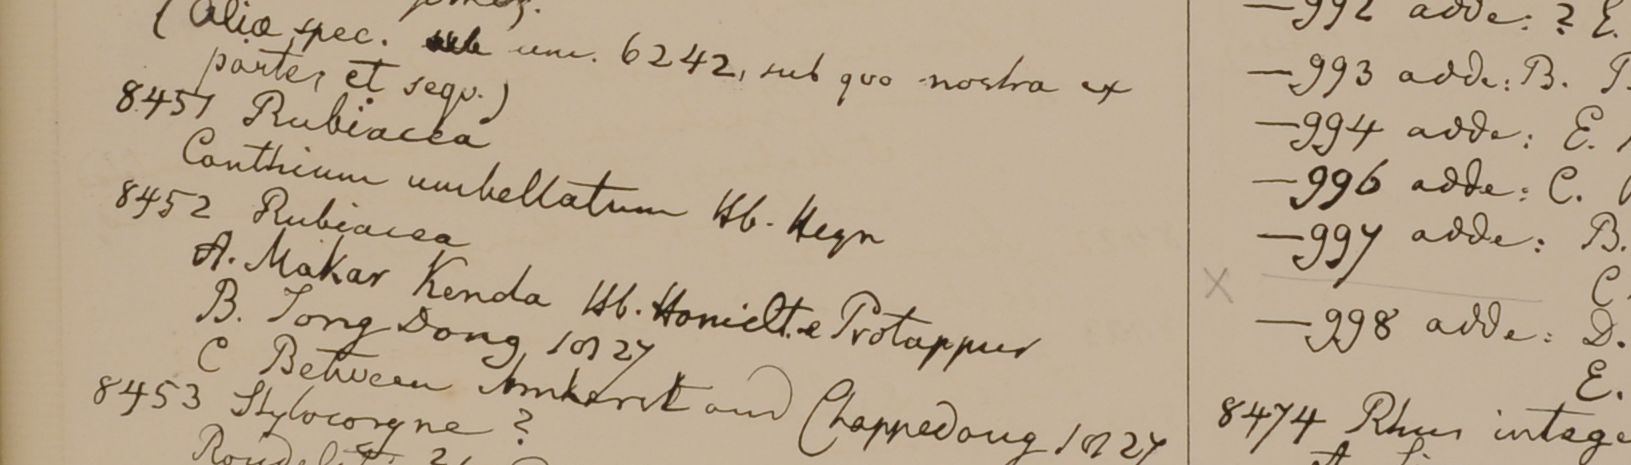 (Aliae spec. sub num. 6242, sub quo nostra ex
parte, et sequ.)
8451 Rubiacea
Canthium umbellatum Hb. Heyn
8452 Rubiacea
A. Makar Kenda Hb. Hamilt. e Protappur
B. Tong Dong 1827
C Between Amherst and Chappedong 1827
8453 Stylocoryne ?
—992 adde: ? E.
—993 adde: B.
—994 adde: E.
—996 adde: C.
—997 adde: B.
C
—998 adde: D.
E.
8474 Rhus intege